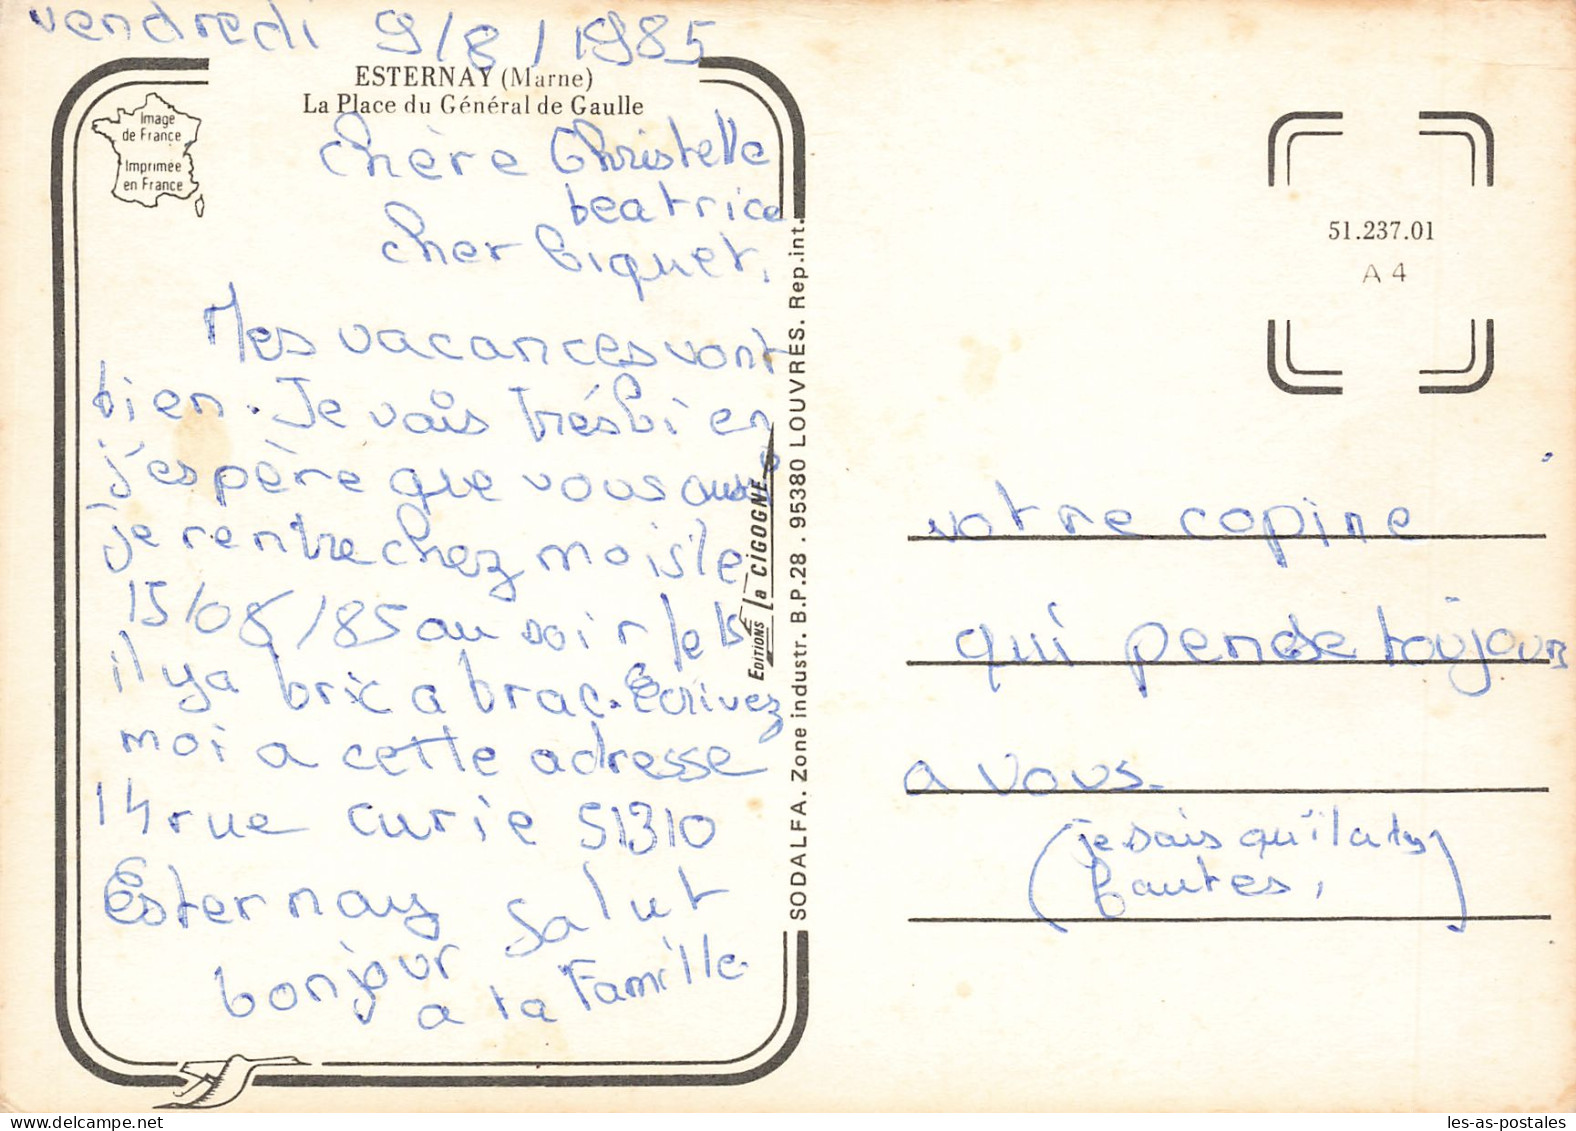 vendredi 9/8/1985
ESTERNAY (Marne)
La Place du Général de Gaulle
Image
de France
Imprimée
en France
chère Christelle
beatrice
cher biquet.
Mes vacances vont
bien. Je vais trés bien
j'espère que vous aussi
je rentre chez mois le
15/08/85 au soir le 15
il y a bric a brac. Écrivez
moi a cette adresse
14 rue curie 51310
Esternay salut
bonjour
a la Famille.
EDITIONS la CIGOGNE
SODALFA. Zone industr. B.P.28 . 95380 LOUVRES. Rep.int.
51.237.01
A 4
votre copine
qui pense toujours
a vous.
(je sais qu'il a des
fautes.)
les-as-postales